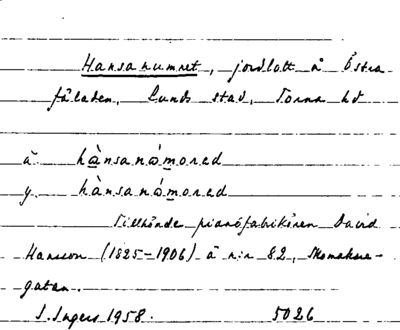 Hansanumret, jordlott å Östra
fäladen, Lunds stad, Torna hd
ä. hànsanómored
y. hànsanómored
Tillhörde pianofabrikören David
Hansson (1825-1906) å n:r 82, Skomakare-
gatan.
I. Ingers 1958. 5026